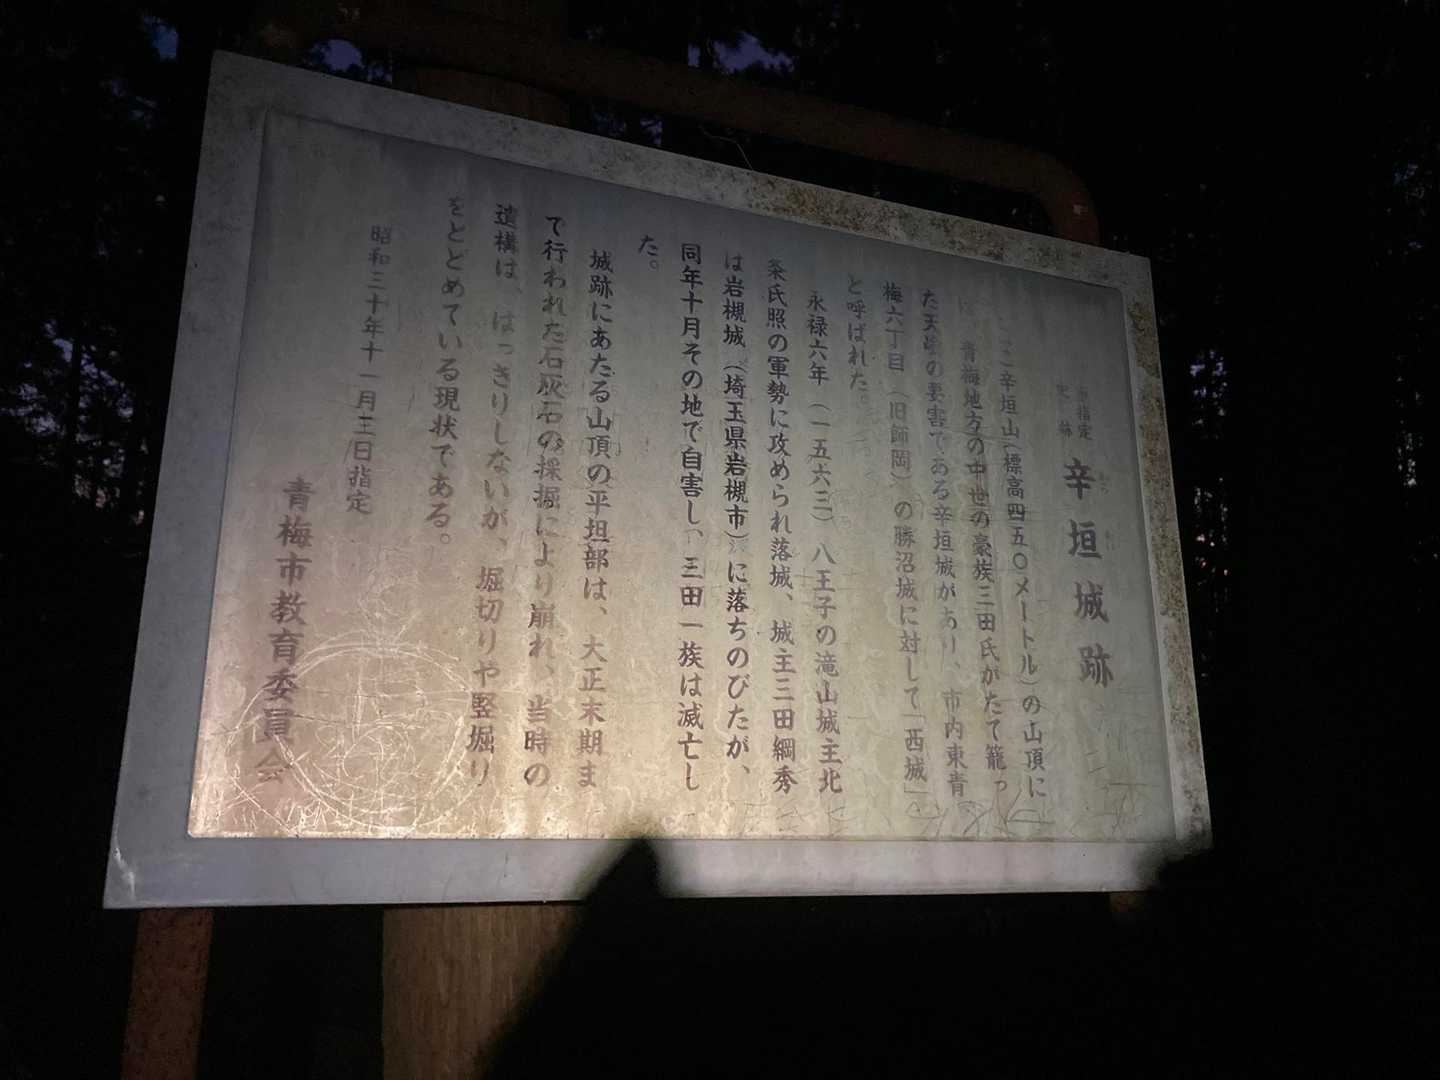 市指定
史跡
辛垣城跡
ここ辛垣山(標高四五〇メートル)の山頂に
は、青梅地方の中世の豪族三田氏がたて籠っ
た天然の要害である辛垣城があり、市内東青
梅六丁目(旧師岡)の勝沼城に対して「西城」
と呼ばれた。
永禄六年(一五六三)八王子の滝山城主北
条氏照の軍勢に攻められ落城、城主三田綱秀
は岩槻城(埼玉県岩槻市)に落ちのびたが、
同年十月その地で自害し、三田一族は滅亡し
た。
城跡にあたる山頂の平坦部は、大正末期ま
で行われた石灰石の採掘により崩れ、当時の
遺構は、はっきりしないが、堀切りや竪堀り
をとどめている現状である。
昭和三十年十一月三日指定
青梅市教育委員会